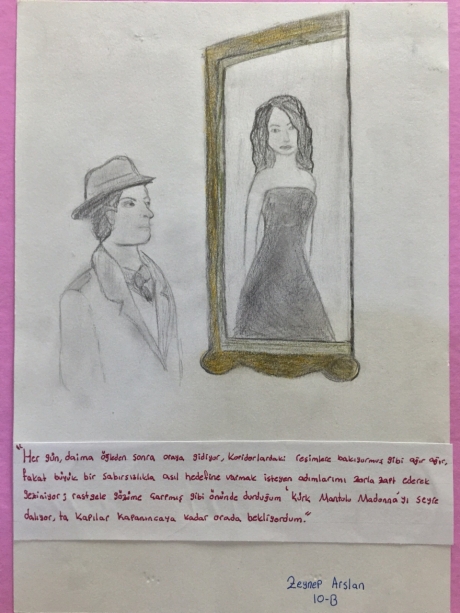 "Her gün, daima öğleden sonra oraya gidiyor, koridorlardaki resimlere bakıyormuş gibi ağır ağır,
fakat büyük bir sabırsızlıkla asıl hedefine varmak isteyen adımlarımı zorla zapt ederek
geziniyor; rastgele gözüme çarpmış gibi önünde durduğum 'Kürk Mantolu Madonna'yı seyre
dalıyor, ta kapılar kapanıncaya kadar orada bekliyordum."
Zeynep Arslan
10-B